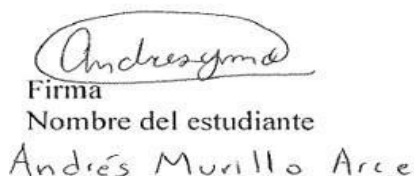 Firma
Nombre del estudiante
Andrés Murillo Arce